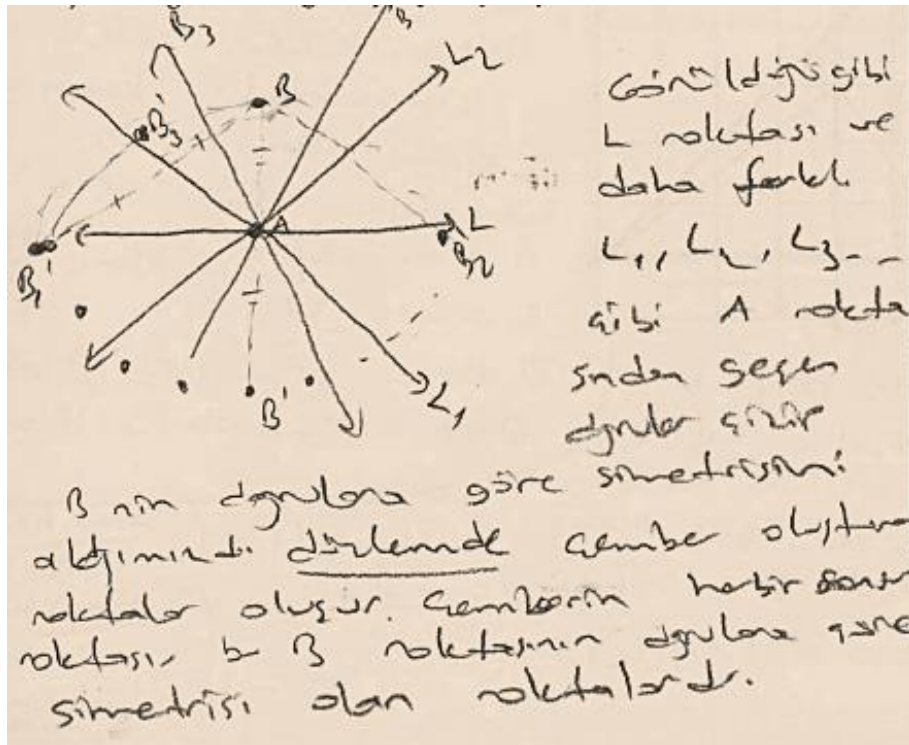 B3
B
L2
B
B'3
A
L
B2
B'1
B'
L1
Görüldüğü gibi
L noktası ve
daha farklı
L1, L2, L3 - -
gibi A nokta
sından geçen
doğrular çizip
B nin doğrulara göre simetrisini
aldığımızda düzlemde çember oluşturan
noktalar oluşur. Çemberin herbir
noktası B noktasının doğrulara göre
simetrisi olan noktalardır.